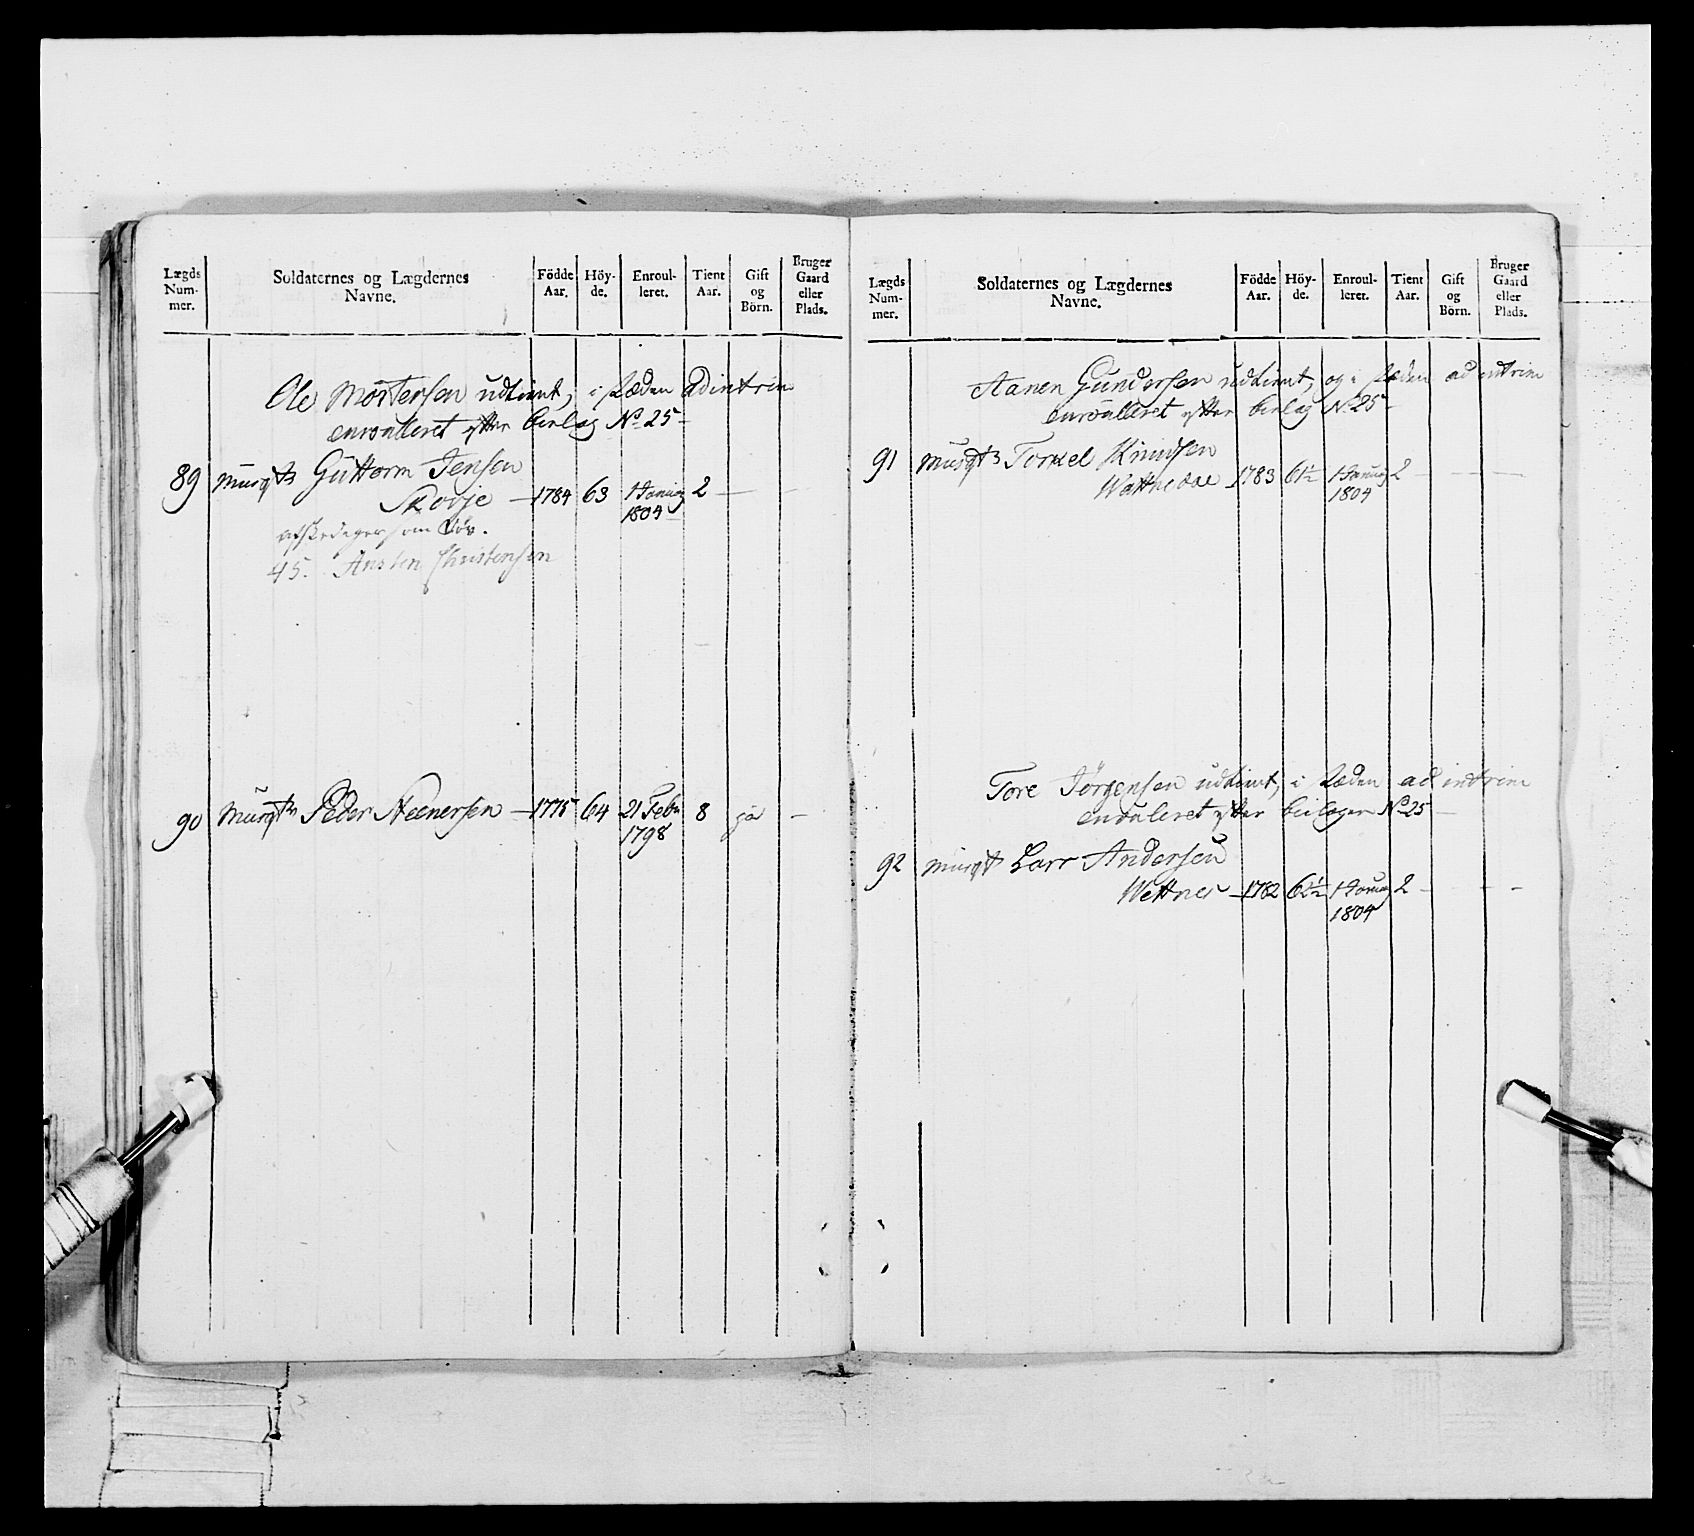 Lægds Num- mer.
Soldaternes og Lægdernes Navne.
Födde Aar.
Höy- de.
Enroul- leret.
Tient Aar.
Gift og Börn.
Bruger Gaard eller Plads.
Ole Mortensen udtient, i stæden ad intrim
enroulleret efter beylag No 25 -
89 Musqt Guttorm Jensen
Skovje - 1784 63 1 Januarj 2 - -
1804
afskediget som Döv.
45. Austen Christensen
90 Musqt Peder Steenersen - 1775 64 21 Febr 8 ja -
1798
Lægds Num- mer.
Soldaternes og Lægdernes Navne.
Födde Aar.
Höy- de.
Enroul- leret.
Tient Aar.
Gift og Börn.
Bruger Gaard eller Plads.
Aanen Gundersen udtient, og i stæden ad intrim
enroulleret efter beylag No 25 -
91 Musqt Torkel Knudsen
1783 61½ 1 Januarj 2 - - -
1804
Tore Jörgensen udtient, i stæden ad intrim
enrouleret efter beilagen No 25 -
92 Musqt Lars Andersen
Wettner - 1782 62½ 1 Januarj 2 - - -
1804